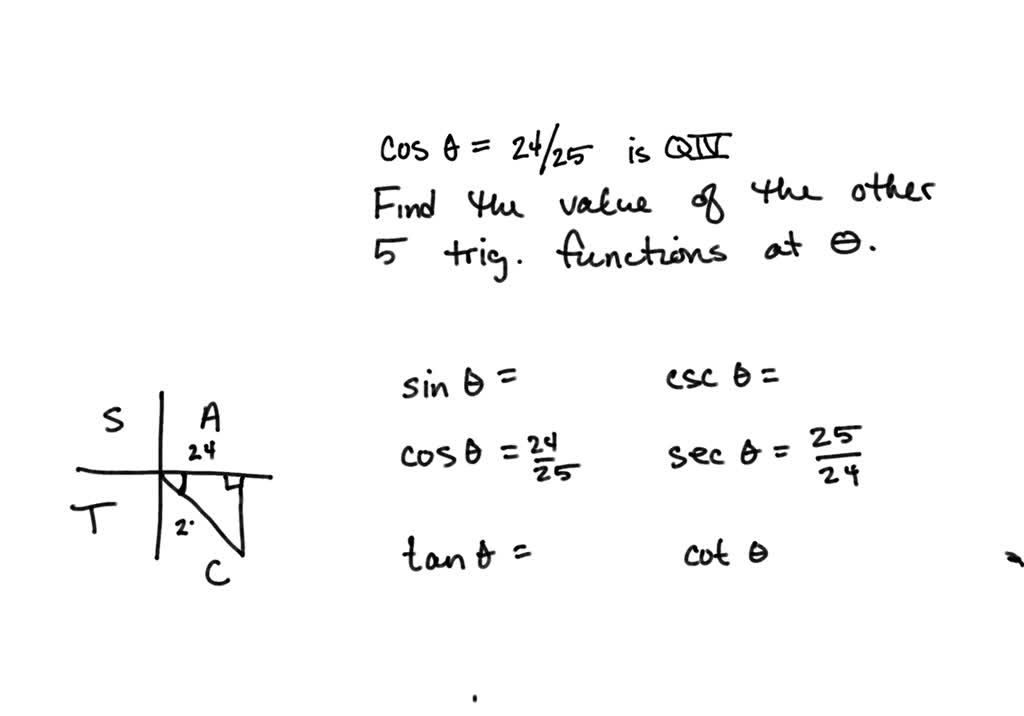 cos θ = 24/25 is QIV
Find the value of the other
5 trig. functions at θ.
sin θ = csc θ =
cos θ = 24/25 sec θ = 25/24
tan θ = cot θ
S A
24
T 2
C